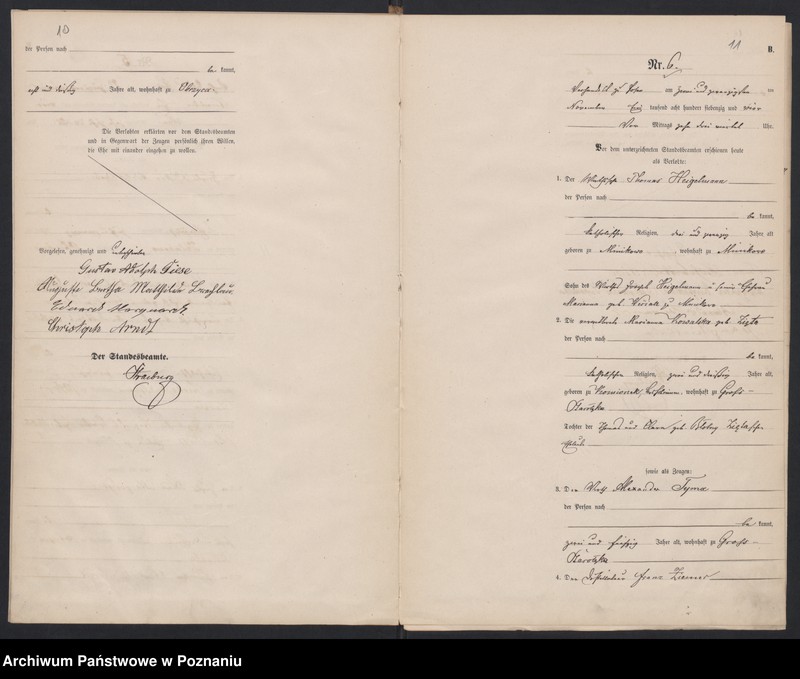 10
der Person nach
be kannt,
acht und dreißig Jahre alt, wohnhaft zu Obrzycko
Die Verlobten erklärten vor dem Standesbeamten
und in Gegenwart der Zeugen persönlich ihren Willen,
die Ehe mit einander eingehen zu wollen.
Vorgelesen, genehmigt und unterschrieben
Gustav Adolph Giese
Auguste Bertha Mathilde
Eduard Marquardt
Christoph Arndt
Der Standesbeamte.
11
B.
Nr. 6.
am zwei und zwanzigsten
November Ein tausend acht hundert siebenzig und vier
Vor Mittags zehn drei viertel Uhr.
Vor dem unterzeichneten Standesbeamten erschienen heute
als Verlobte:
1. Der Thomas Heigelmann
der Person nach
be kannt,
katholischer Religion, drei und zwanzig Jahre alt
geboren zu Minikowo, wohnhaft zu Minikowo
Sohn des Wirths Joseph Heigelmann u seiner Ehefrau
Marianna geb. zu Minikowo
2. Die Marianna Kowalska geb.
der Person nach
be kannt,
katholischer Religion, zwei und dreißig Jahre alt,
geboren zu wohnhaft zu Groß-
Starolenka
Tochter der Thomas und geb.
sowie als Zeugen:
3. Der Wirth Alexander Tyma
der Person nach
be kannt,
zwei und fünfzig Jahre alt, wohnhaft zu Groß-
Starolenka
4. Der Franz
Archiwum Państwowe w Poznaniu